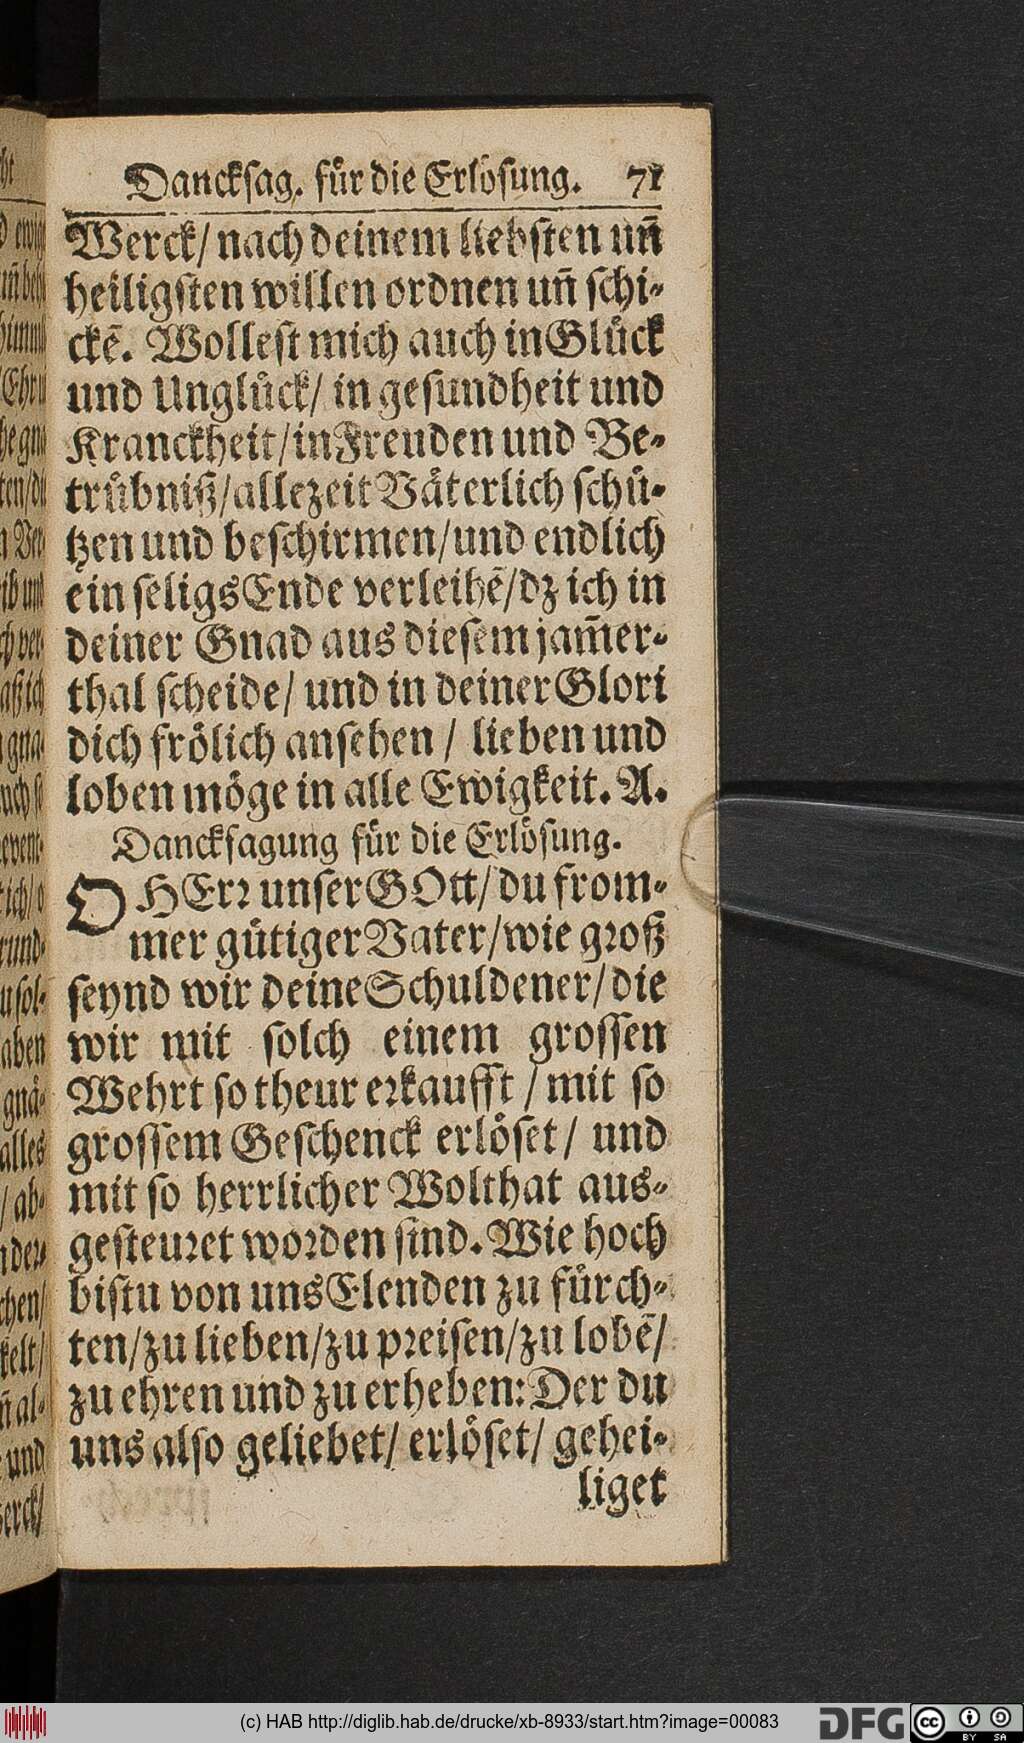 Danckſag. fuͤr die Erloͤſung. 71
Werck/ nach deinem liebſten uñ
heiligſten willen ordnen uñ ſchi-
ckẽ. Wolleſt mich auch in Gluͤck
und Ungluͤck/ in geſundheit und
Kranckheit/ in Freuden und Be-
truͤbniß/ allezeit Vaͤterlich ſchuͤ-
tzen und beſchirmen/ und endlich
ein ſeligs Ende verleihẽ/ dz ich in
deiner Gnad aus dieſem jam̃er-
thal ſcheide/ und in deiner Glori
dich froͤlich anſehen / lieben und
loben moͤge in alle Ewigkeit. A.
Danckſagung fuͤr die Erloͤſung.
O HErꝛ unſer GOtt/ du from-
mer guͤtiger Vater/ wie groß
ſeynd wir deine Schuldener/ die
wir mit ſolch einem groſſen
Wehrt ſo theur erkaufft / mit ſo
groſſem Geſchenck erloͤſet/ und
mit ſo herrlicher Wolthat aus-
geſteuret worden ſind. Wie hoch
biſtu von uns Elenden zu fuͤrch-
ten/ zu lieben/ zu preiſen/ zu lobẽ/
zu ehren und zu erheben: Der du
uns alſo geliebet/ erloͤſet/ gehei-
liget
(c) HAB http://diglib.hab.de/drucke/xb-8933/start.htm?image=00083
DFG
cc
BY SA